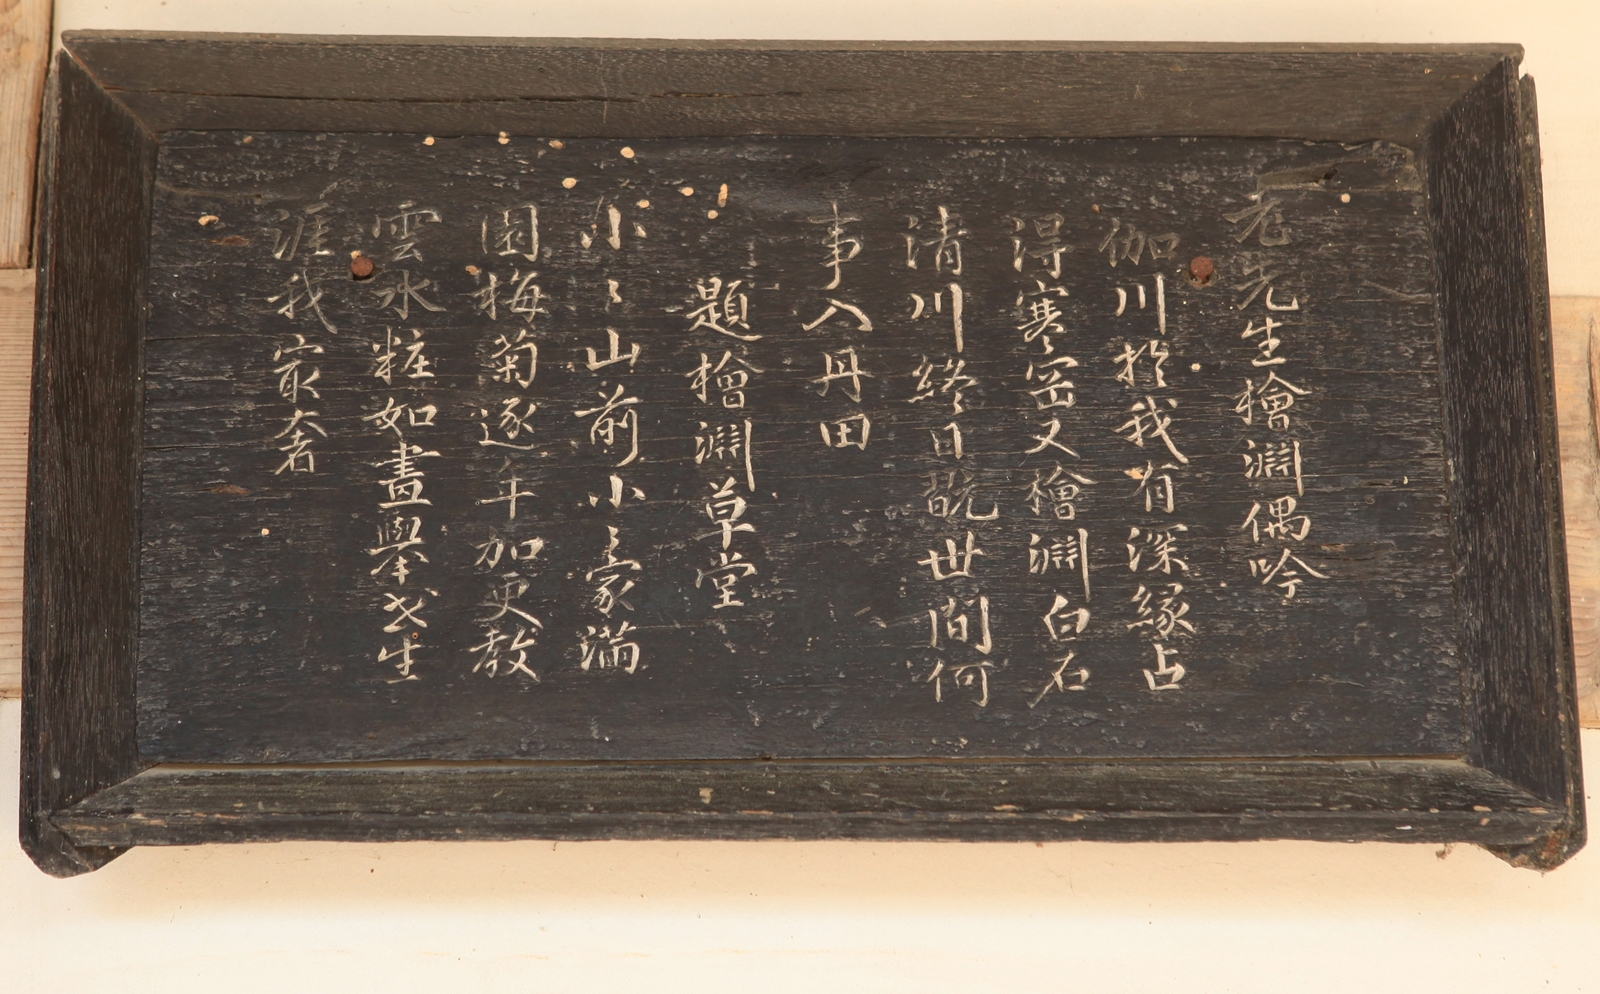 老先生檜淵偶吟
伽川於我有深緣占
得寒岩又檜淵白石
清川終日翫世間何
事入丹田
題檜淵草堂
小〻山前小〻家滿
園梅菊逐年加更教
雲水粧如畫擧世生
涯我最奢